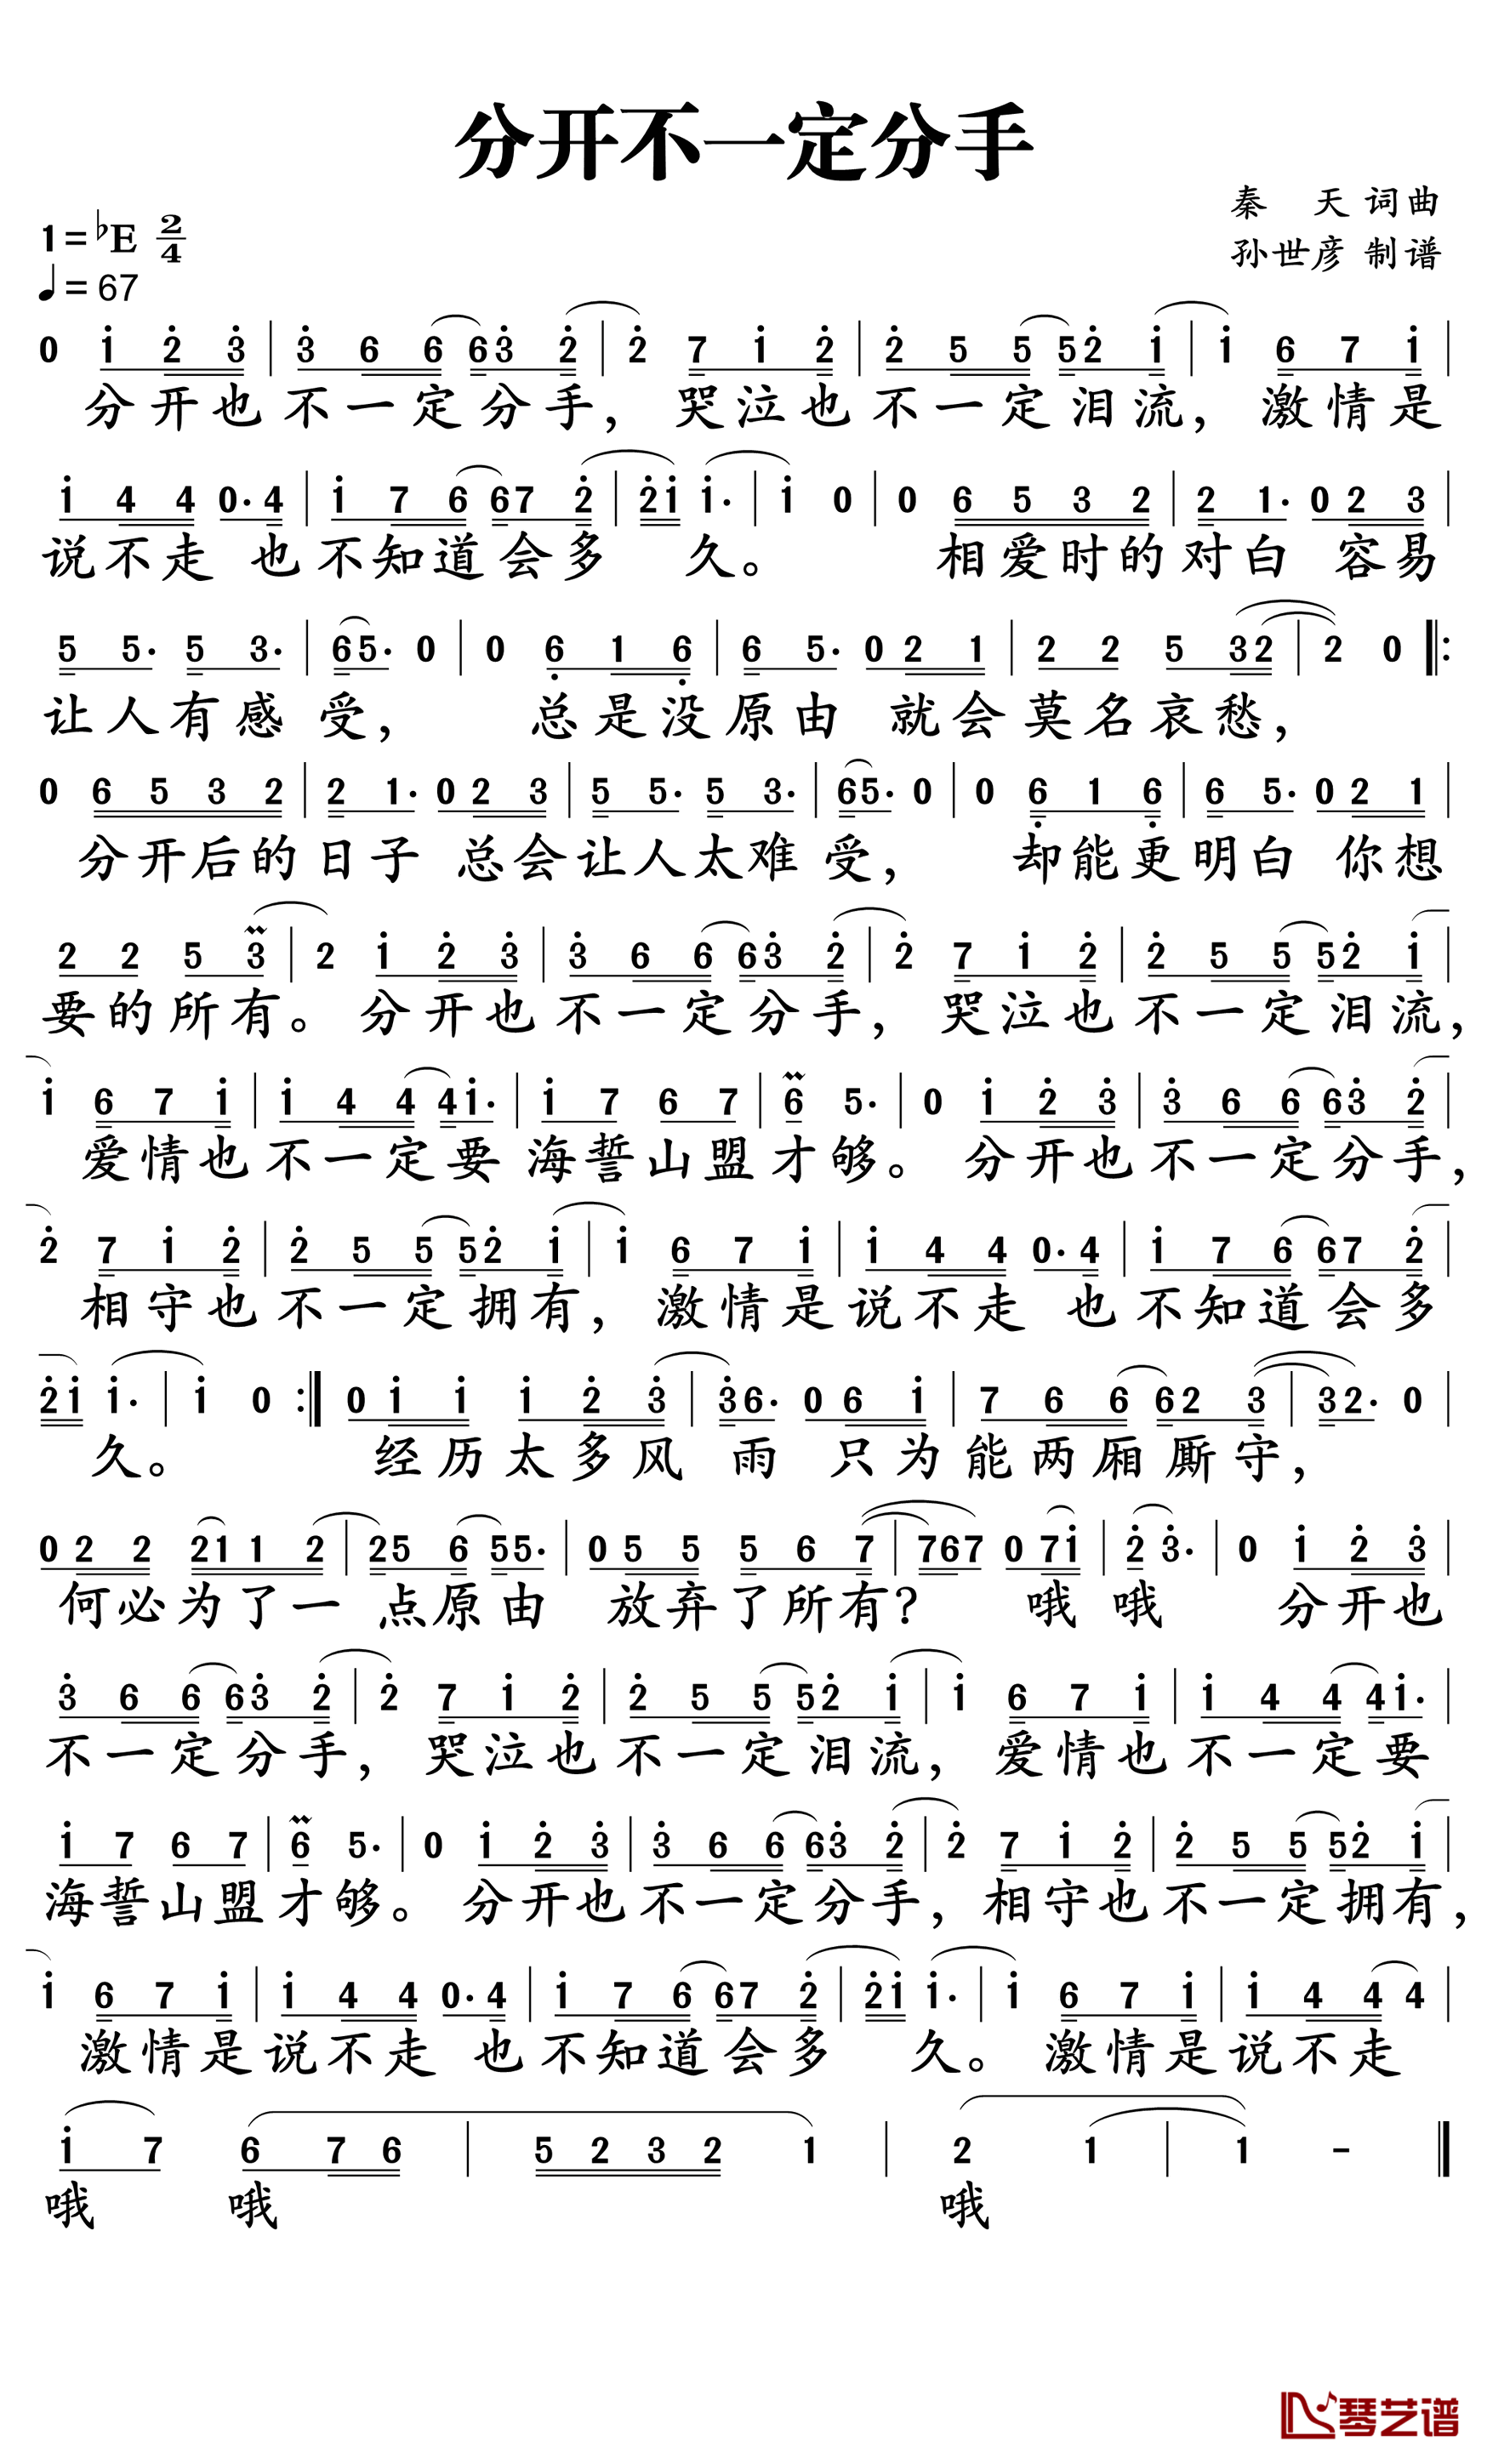 分开不一定分手
秦 天 词曲
1=♭E 2/4
孙世彦 制谱
♩=67
0 1̇ 2̇ 3̇ | 3̇ 6 6 63̇ 2̇ | 2̇ 7 1̇ 2̇ | 2̇ 5 5 52̇ 1̇ | 1̇ 6 7 1̇ |
分开也不一定分手，哭泣也不一定泪流，激情是
1̇ 4 4 0·4 | 1̇ 7 6 67 2̇ | 2̇1̇ 1̇· | 1̇ 0 | 0 6 5 3 2 | 2 1· 0 2 3 |
说不走 也不知道会多 久。 相爱时的对白 容易
5 5· 5 3· | 65· 0 | 0 6̣ 1 6̣ | 6 5· 0 2 1 | 2 2 5 32 | 2 0 ‖:
让人有感 受， 总是没原由 就会莫名哀愁，
0 6 5 3 2 | 2 1· 0 2 3 | 5 5· 5 3· | 65· 0 | 0 6̣ 1 6̣ | 6 5· 0 2 1 |
分开后的日子 总会让人太难 受， 却能更明白 你想
2 2 5 3 | 2 1̇ 2̇ 3̇ | 3̇ 6 6 63̇ 2̇ | 2̇ 7 1̇ 2̇ | 2̇ 5 5 52̇ 1̇ |
要的所有。分开也不一定分手，哭泣也不一定泪流，
1̇ 6 7 1̇ | 1̇ 4 4 41̇· | 1̇ 7 6 7 | 6 5· | 0 1̇ 2̇ 3̇ | 3̇ 6 6 63̇ 2̇ |
爱情也不一定要海誓山盟才够。分开也不一定分手，
2̇ 7 1̇ 2̇ | 2̇ 5 5 52̇ 1̇ | 1̇ 6 7 1̇ | 1̇ 4 4 0·4 | 1̇ 7 6 67 2̇ |
相守也不一定拥有，激情是说不走 也不知道会多
2̇1̇ 1̇· | 1̇ 0 :‖ 0 1̇ 1̇ 1̇ 2̇ 3̇ | 3̇6· 0 6 1̇ | 7 6 6 62 3 | 32· 0 |
久。 经历太多风 雨 只为能两厢厮守，
0 2 2 21 1 2 | 25 6 55· | 0 5 5 5 6 7 | 767 0 71̇ | 2̇ 3̇· | 0 1̇ 2̇ 3̇ |
何必为了一 点原由 放弃了所有？ 哦 哦 分开也
3̇ 6 6 63̇ 2̇ | 2̇ 7 1̇ 2̇ | 2̇ 5 5 52̇ 1̇ | 1̇ 6 7 1̇ | 1̇ 4 4 41̇· |
不一定分手，哭泣也不一定泪流，爱情也不一定要
1̇ 7 6 7 | 6 5· | 0 1̇ 2̇ 3̇ | 3̇ 6 6 63̇ 2̇ | 2̇ 7 1̇ 2̇ | 2̇ 5 5 52̇ 1̇ |
海誓山盟才够。分开也不一定分手，相守也不一定拥有，
1̇ 6 7 1̇ | 1̇ 4 4 0·4 | 1̇ 7 6 67 2̇ | 2̇1̇ 1̇· | 1̇ 6 7 1̇ | 1̇ 4 4 4 |
激情是说不走 也不知道会多 久。激情是说不走
1̇ 7 6 7 6 | 5 2 3 2 1 | 2 1 | 1 - ‖
哦 哦 哦
琴艺谱